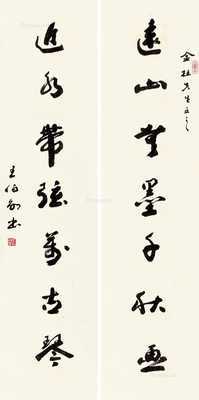 金林先生正之
遠山無墨千秋畫
近水帶弦萬古琴
王伯敏書